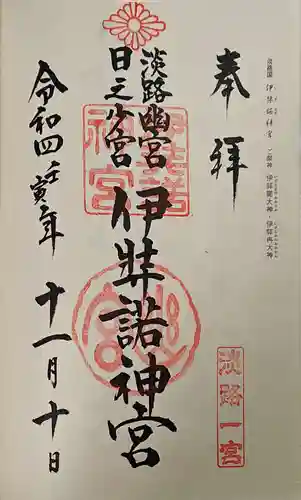 淡路國 伊弉諾神宮 ご祭神 伊弉諾大神・伊弉冉大神
奉拝
淡路一宮
淡路幽宮
日之少宮
伊弉諾神宮
令和四壬寅年十一月十日